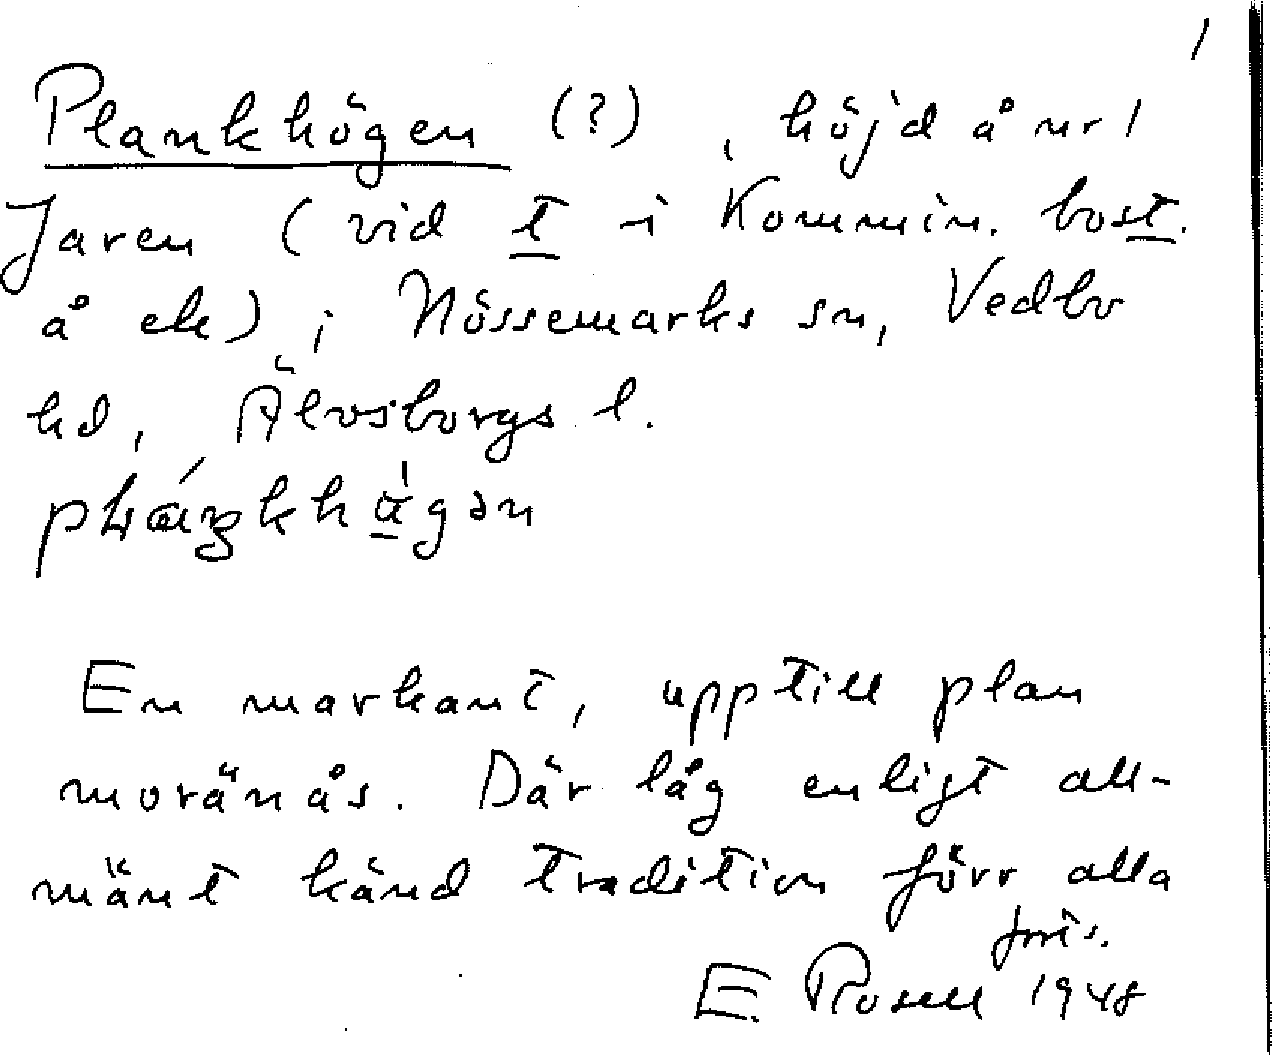 1
Plankhögen (?), höjd å nr 1
Jaren (vid t i Kommin. bost.
å ek) i Nössemarks sn, Vedbo
hd, Älvsborgs l.
En markant, upptill plan
moränås. Där låg enligt all-
mänt känd tradition förr alla
forts.
E. Rosell 1948